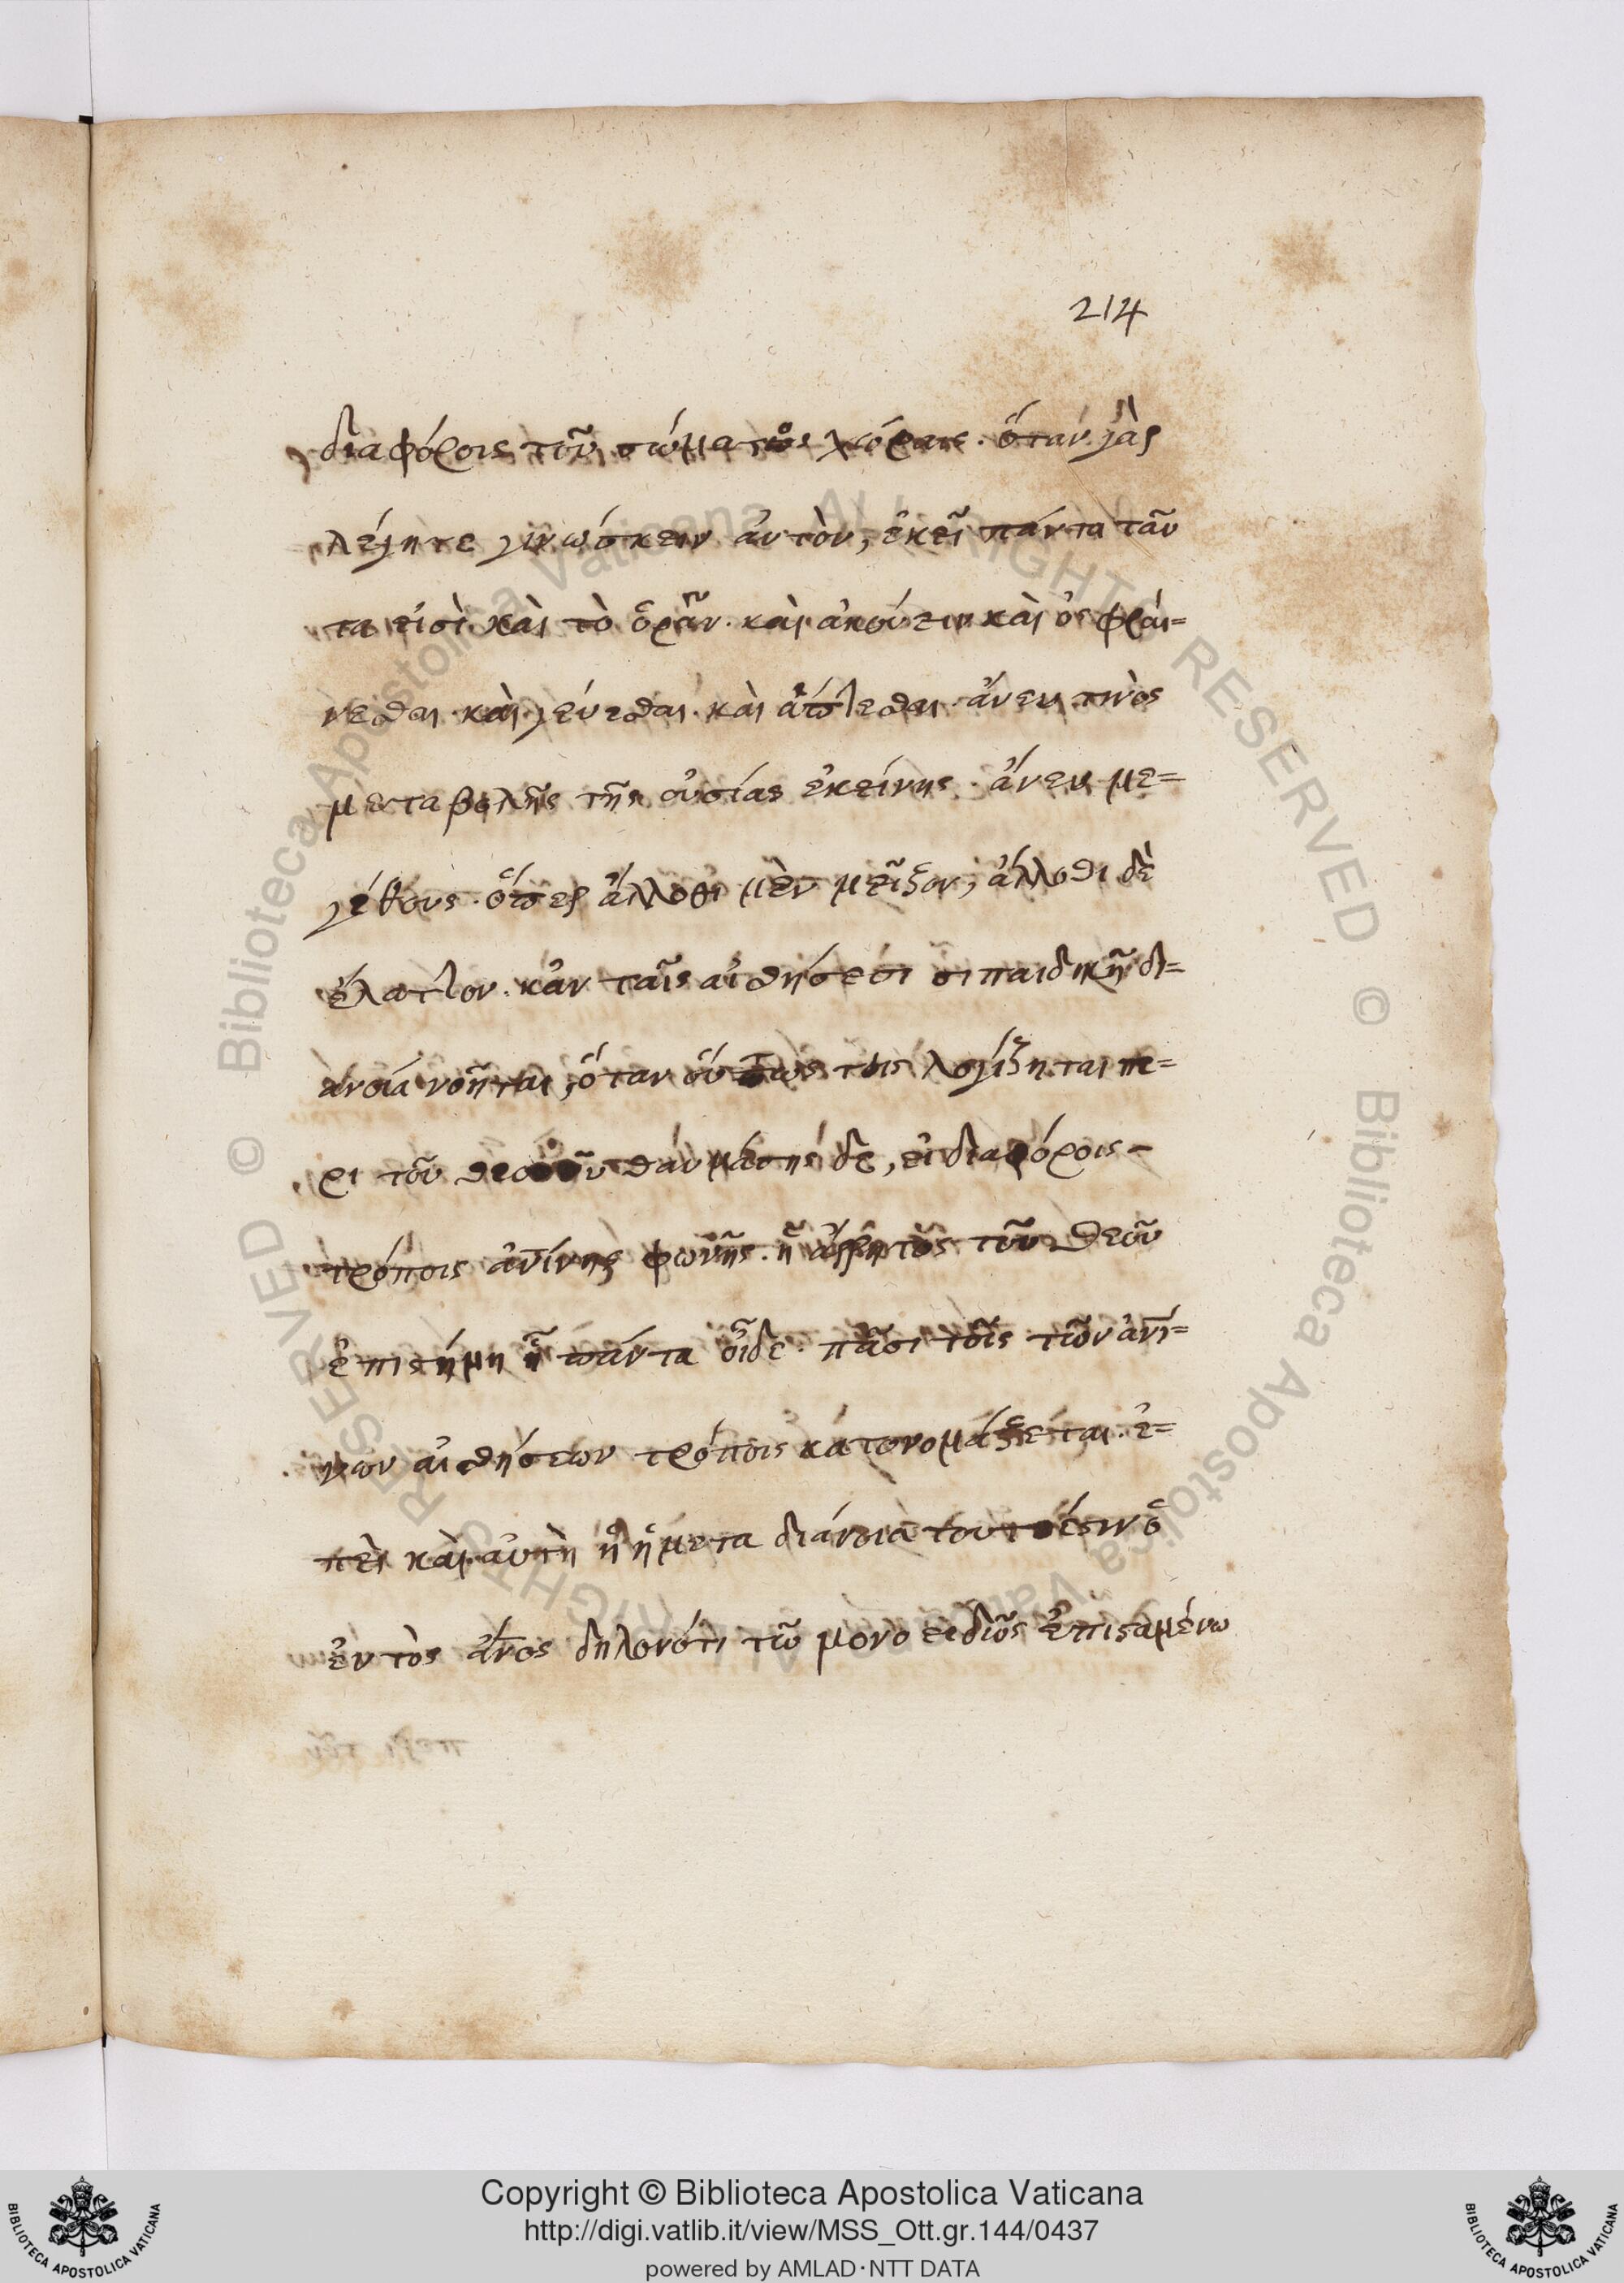 214
διαφόροις τοῦ σώματος χώραις. ὅταν γὰρ
λέγητε γινώσκειν ἀυτὸν, ἐκεῖ πάντα ταῦ
τα εἰσὶ καὶ τὸ ὁρᾶν. καὶ ἀκούειν καὶ ὀσφραί=
νεσθαι. καὶ γεύεσθαι. καὶ ἅπτεσθαι. ἄνευ τινὸς
μεταβολῆς τῆς οὐσίας ἐκείνης. ἄνευ με=
γέθους. ὅπερ ἄλλοθι μὲν μεῖζον, ἄλλοθι δὲ
ἔλαττον. κἂν ταῖς αἰσθήσεσι παιδικῆ δι=
ανοία νοῆται, ὅταν οὕτως τις λογίζηται πε=
ρι τοῦ θεοῦ θαυμάσης δὲ, εἰ διαφόροις -
τρόποις ἀνίνης φωνῆς. ἡ ἄρρητος τοῦ θεοῦ
ἐπιστήμη ἣ πάντα οἶδε. πᾶσι τοῖς τῶν ἀνί=
νων αἰσθήσεων τρόποις κατονομάζεται. ἐ=
πεὶ καὶ αὐτὴ ἡ ἡμετα διάνοια τουτέστιν ὁ
ἐντὸς ἄνος δηλονότι τῶ μονοειδῶς ἐπισταμένω
Copyright © Biblioteca Apostolica Vaticana
http://digi.vatlib.it/view/MSS_Ott.gr.144/0437
powered by AMLAD·NTT DATA
BIBLIOTECA APOSTOLICA VATICANA
BIBLIOTECA APOSTOLICA VATICANA
© Biblioteca Apostolica Vaticana ALL RIGHTS RESERVED © Biblioteca Apostolica Vaticana ALL RIGHTS RESERVED